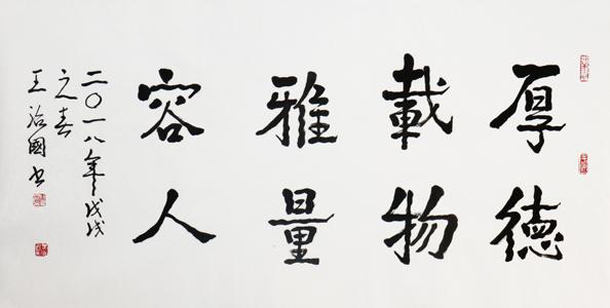 厚德
載物
雅量
容人
二〇一八年戊戌
之春
王治國书